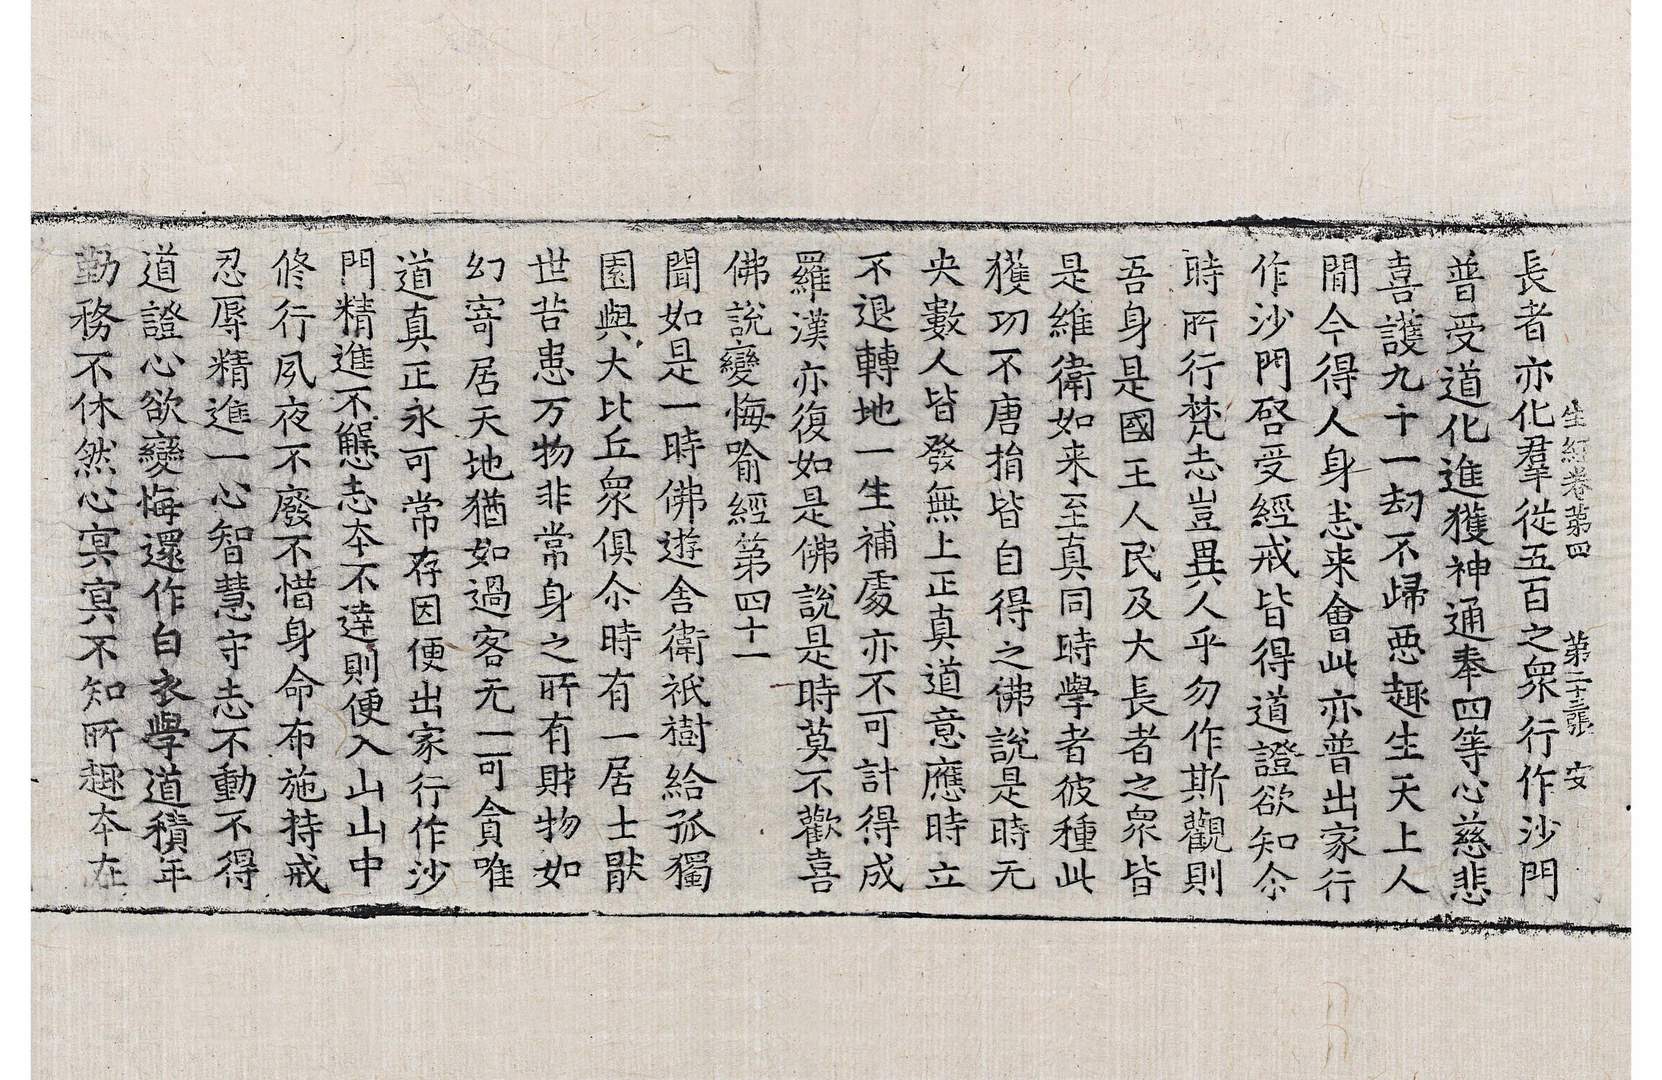 生經卷第四 第二十三張 安
長者亦化羣從五百之衆行作沙門
普受道化進獲神通奉四等心慈悲
喜護九十一劫不歸惡趣生天上人
間今得人身悉来會此亦普出家行
作沙門啓受經戒皆得道證欲知尒
時所行梵志豈異人乎勿作斯觀則
吾身是國王人民及大長者之衆皆
是維衛如来至真同時學者彼種此
獲功不唐捐皆自得之佛說是時无
央數人皆發無上正真道意應時立
不退轉地一生補處亦不可計得成
羅漢亦復如是佛說是時莫不歡喜
佛說變悔喻經第四十一
聞如是一時佛遊舍衛祇樹給孤獨
園與大比丘衆俱尒時有一居士猒
世苦患万物非常身之所有財物如
幻寄居天地猶如過客无一可貪唯
道真正永可常存因便出家行作沙
門精進不懈志夲不達則便入山山中
脩行夙夜不廢不惜身命布施持戒
忍辱精進一心智慧守志不動不得
道證心欲變悔還作白衣學道積年
勤務不休然心冥冥不知所趣夲在